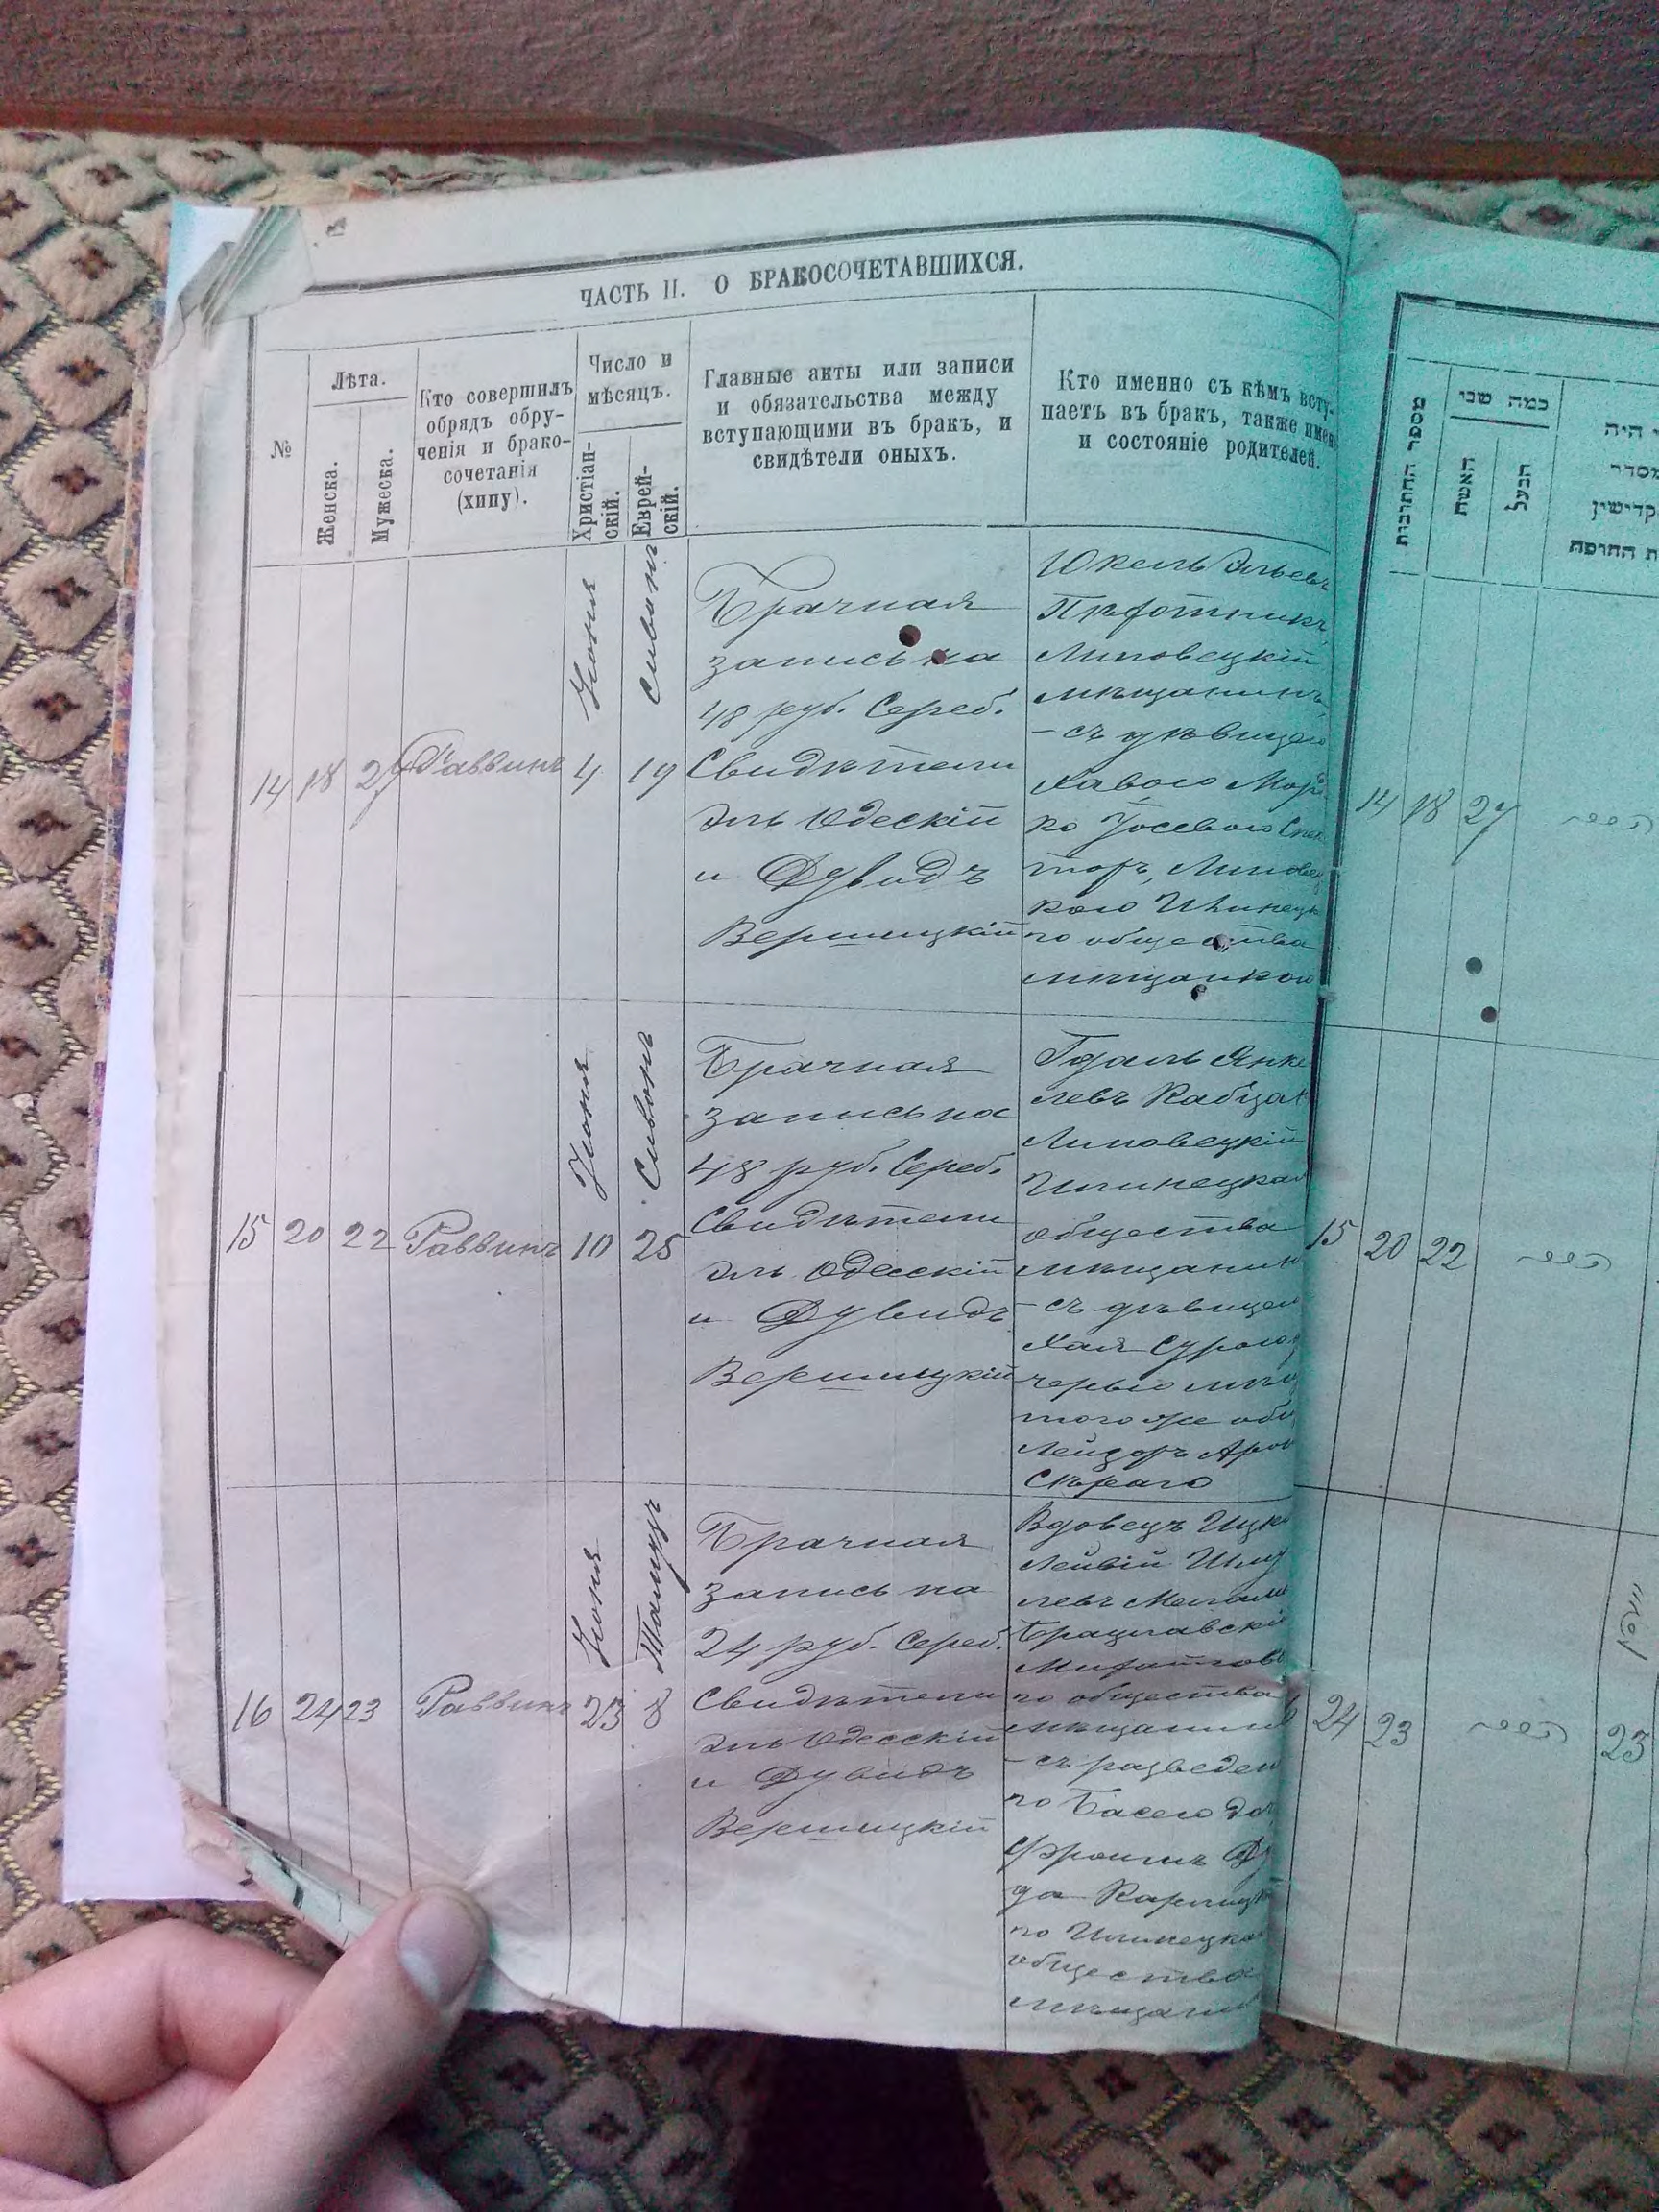 ЧАСТЬ II. О БРАКОСОЧЕТАВШИХСЯ.
№
Лѣта.
Женска.
Мужеска.
Кто совершилъ
обрядъ обру-
ченія и брако-
сочетанія
(хипу).
Число и
мѣсяцъ.
Христіан-
скій.
Еврей-
скій.
Главные акты или записи
и обязательства между
вступающими въ бракъ, и
свидѣтели оныхъ.
Кто именно съ кѣмъ всту-
паетъ въ бракъ, также имен
и состояніе родителей.
14
18
27
Раввинъ
Іюня
4
Сивонъ
19
Брачная
запись на
48 руб. Сереб.
Свидѣтели
Эль Одескій
и Дувидъ
Вершицкій
Юкель Эльевъ
Липовецкій
мѣщанинъ,
– съ дѣвицею
Хавою Мор
ко Іосевою Спек
торъ, Липовец
кого Илинецк
го общества
мѣщанкою
15
20
22
Раввинъ
Іюня
10
Сивонъ
25
Брачная
запись на
48 руб. Сереб.
Свидѣтели
Эль Одесскій
и Дувидъ
Вершицкій
Янке
левъ
Липовецкій
Илинецкаг
общества
мѣщанин
– съ дѣвицею
Хая Сурою
черью мѣщ
того же общ
Лейзоръ Арон
16
24
23
Раввинъ
Іюня
23
Тамузъ
8
Брачная
запись на
24 руб. Сереб.
Свидѣтели
Эль Одесскій
и Дувидъ
Вершицкій
Вдовецъ Ицко
Лейвій Шму
левъ
Брацлавскі
го общества
мѣщанин
– съ разведен
но Басею доч
Фроимъ Ду
да
го Илинецка
общества
мѣщанин
מספר החתונות
כמה שני
האשה
הבעל
היה
מסדר
קדישין
החופה
14
18
27
15
20
22
24
23
23
יוני